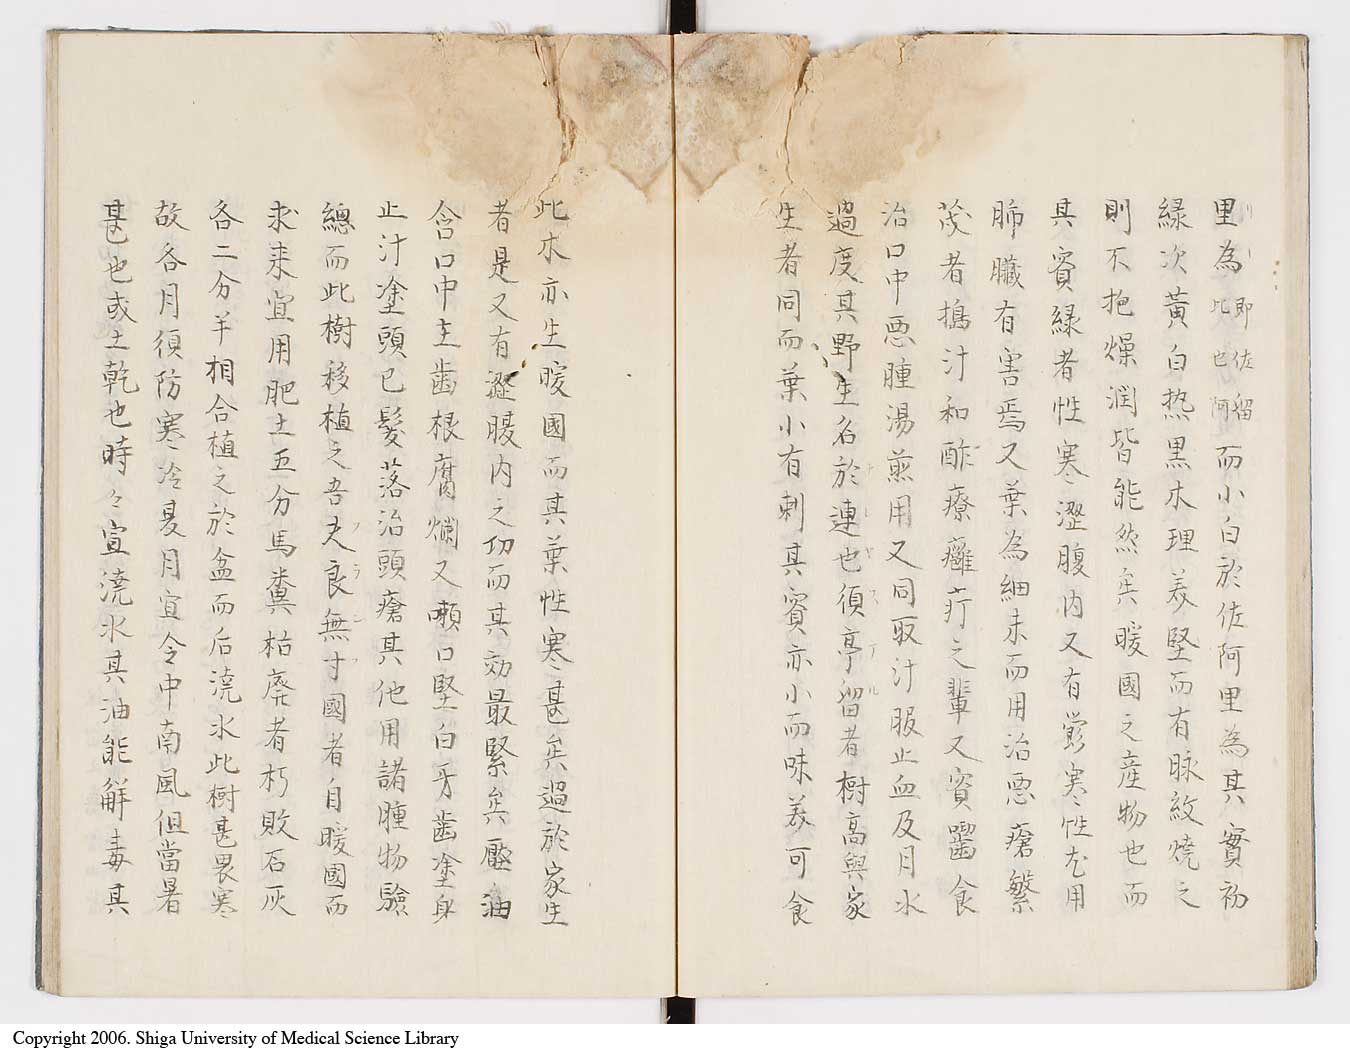 里為即佐留比也阿而小白於佐阿里為其實初
緑次黄白熟黒木理美堅而有脉紋焼之
則不抱燥潤皆能然矣暖國之産物也而
其實緑者性寒澁腹内又有鬱寒性尤用
肺臟有害焉又葉為細末而用治悪瘡繁
茂者搗汁和酢療癰疔之輩又實醫食
治口中悪腫湯煎用又同取汁服止血及月水
過度其野生名於連也須亭留者樹高與家
生者同而葉小有刺其實亦小而味美可食
此木亦生暖國而其葉性寒甚矣過於家生
者是又有澁腸内之功而其効最緊矣壓油
含口中主歯根腐爛又嗽口堅白牙歯塗身
止汁塗頭已髪落治頭瘡其他用諸腫物驗
總而此樹移植之吾夫良無寸國者自暖國而
求来宜用肥土五分馬糞枯廃者朽敗石灰
各二分半相合植之於盆而后澆水此樹甚畏寒
故各月須防寒冷夏月宜令中南風但當暑
甚也或土乾也時々宣澆水其油能解毒其
Copyright 2006. Shiga University of Medical Science Library